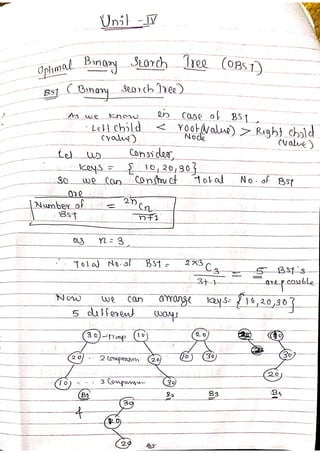 Unit - IV
Optimal Binary Search Tree (OBST)
BST ( Binary Search Tree)
As we know in case of BST,
Left child < root(value) > Right child
(value) Node (value)
Let us Consider,
Keys = { 10, 20, 30}
So we can Construct total No. of BST
are
Number of BST = 2nCn / n+1
as n = 3.
Total No. of BST = 2×3C3 / 3+1 = 5 BST's are possible
Now we can arrange keys = {10, 20, 30}
5 different ways
30 10 20 10
20 .. 2 Comparison 20 10 30 30
10 ... 3 Comparison 30 20
B1 B2 B3 B4
30
20
B5